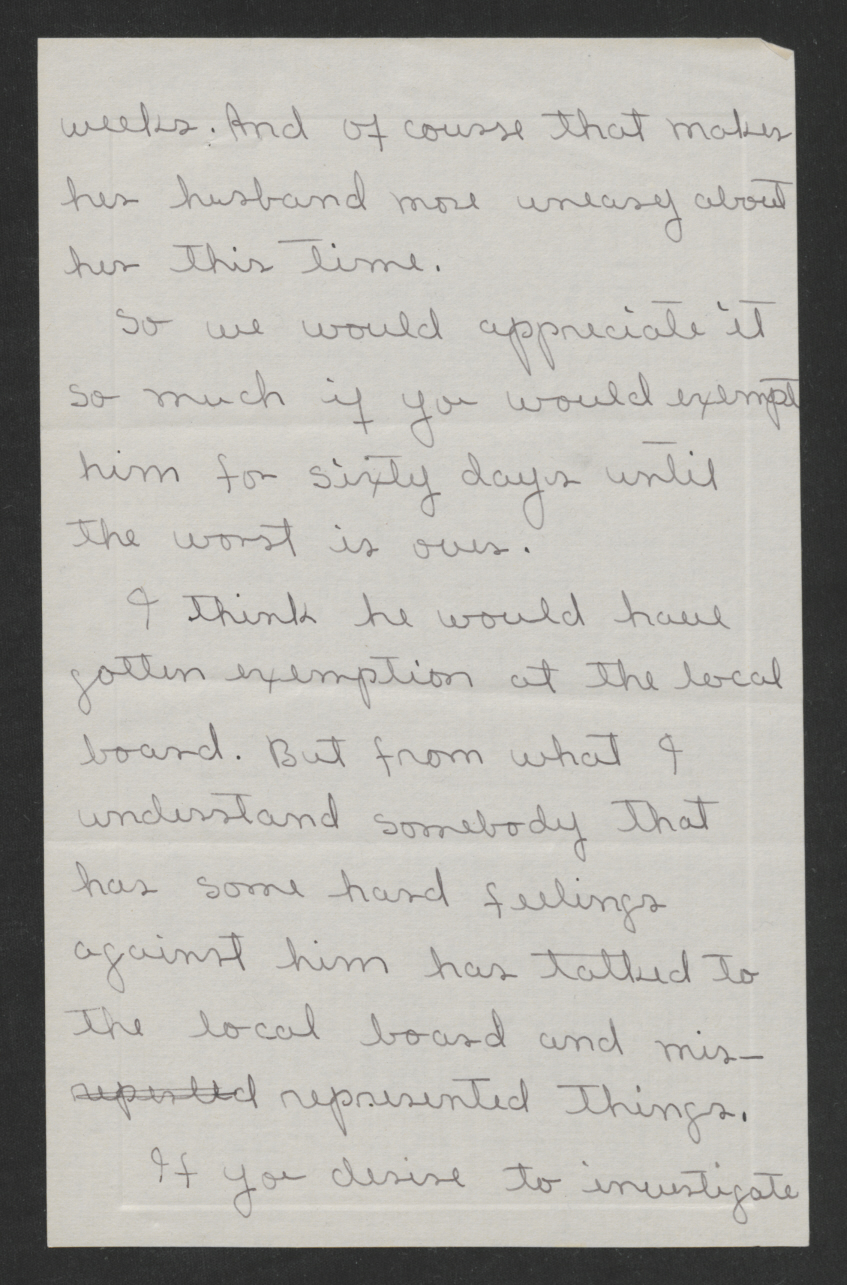 weeks. And of course that makes
her husband more uneasy about
her this time.
So we would appreciate it
so much if you would exempt
him for sixty days until
the worst is over.
I think he would have
gotten exemption at the local
board. But from what I
understand somebody that
has some hard feelings
against him has talked to
the local board and mis-
represented things.
If you desire to investigate